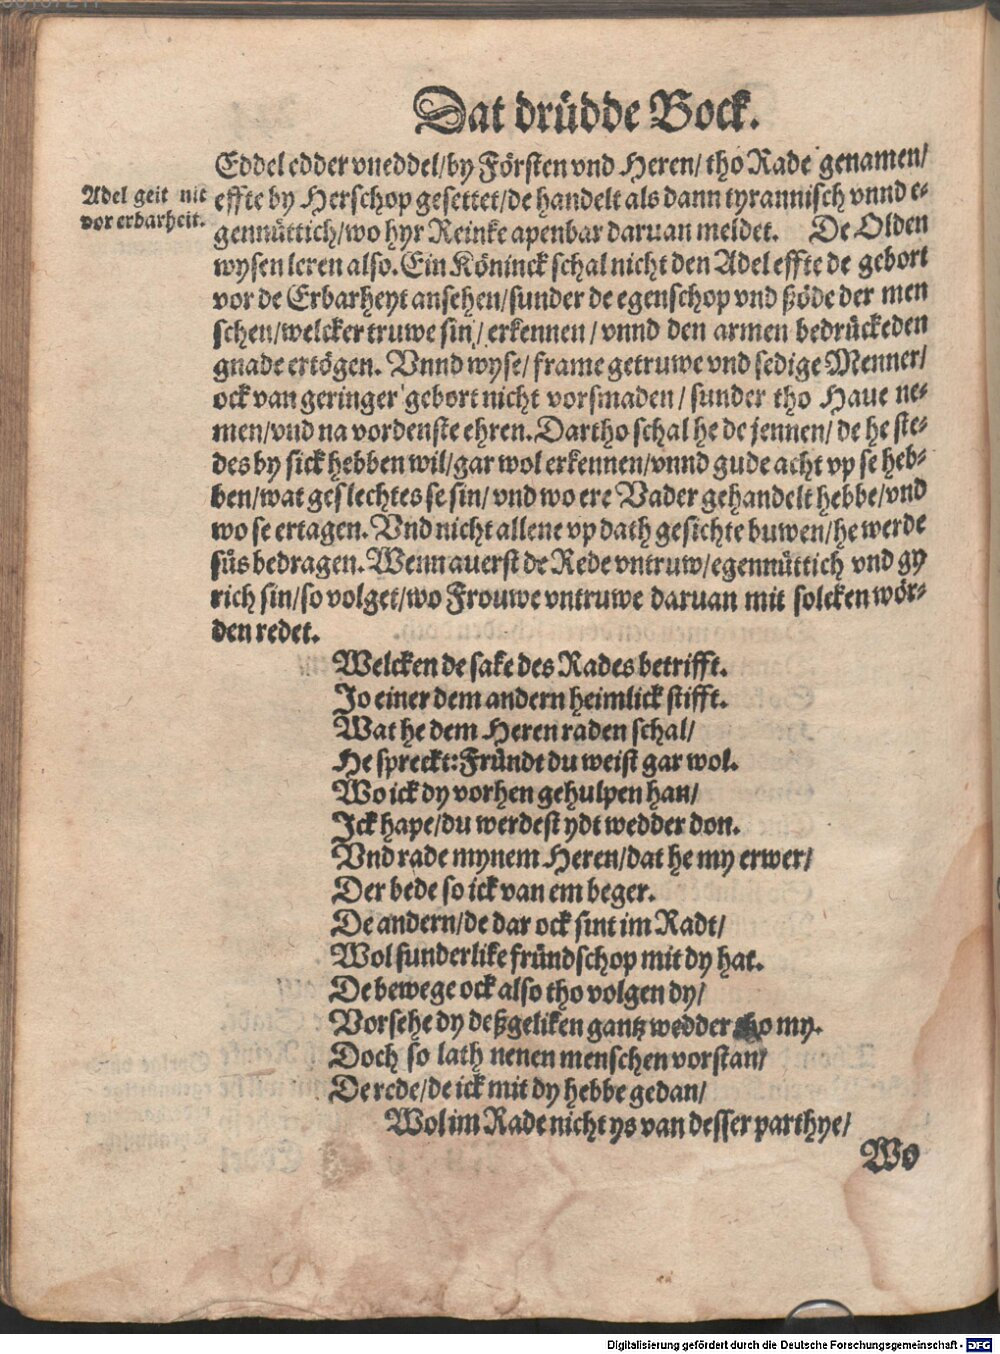 Dat drüdde Bock.
Eddel edder vneddel/by Försten vnd Heren/ tho Rade genamen/
Adel geit nit
vor erbarheit.
effte by Herschop gesettet/de handelt als dann tyrannisch vnnd e⸗
gennüttich/wo hyr Reinke apenbar daruan meldet. De Olden
wysen leren also. Ein Köninck schal nicht den Adel effte de gebort
vor de Erbarheyt ansehen/sunder de egenschop vnd ßöde der men
schen/welcker truwe sin/ erkennen/ vnnd den armen bedrückeden
gnade ertögen. Vnnd wyse/ frame getruwe vnd sedige Menner/
ock van geringer gebort nicht vorsmaden/ sunder tho Haue ne⸗
men/vnd na vordenste ehren. Dartho schal he de jennen/ de he ste⸗
des by sick hebben wil/gar wol erkennen/vnnd gude acht vp se heb⸗
ben/wat geslechtes se sin/ vnd wo ere Vader gehandelt hebbe/vnd
wo se ertagen. Vnd nicht allene vp dath gesichte buwen/he werde
süs bedragen. Wenn auerst de Rede vntruw/egennüttich vnd gy
rich sin/so volget/wo Frouwe vntruwe daruan mit solcken wör⸗
den redet.
Welcken de sake des Rades betrifft.
Jo einer dem andern heimlick stifft.
Wat he dem Heren raden schal/
He spreckt: Fründt du weist gar wol.
Wo ick dy vorhen gehulpen han/
Ick hape/du werdest ydt wedder don.
Vnd rade mynem Heren/dat he my erwer/
Der bede so ick van em beger.
De andern/de dar ock sint im Radt/
Wol sunderlike fründschop mit dy hat.
De bewege ock also tho volgen dy/
Vorsehe dy deßgeliken gantz wedder tho my.
Doch so lath nenen menschen vorstan/
De rede/de ick mit dy hebbe gedan/
Wol im Rade nicht ys van desser parthye/
Wo
Digitalisierung gefördert durch die Deutsche Forschungsgemeinschaft - DFG